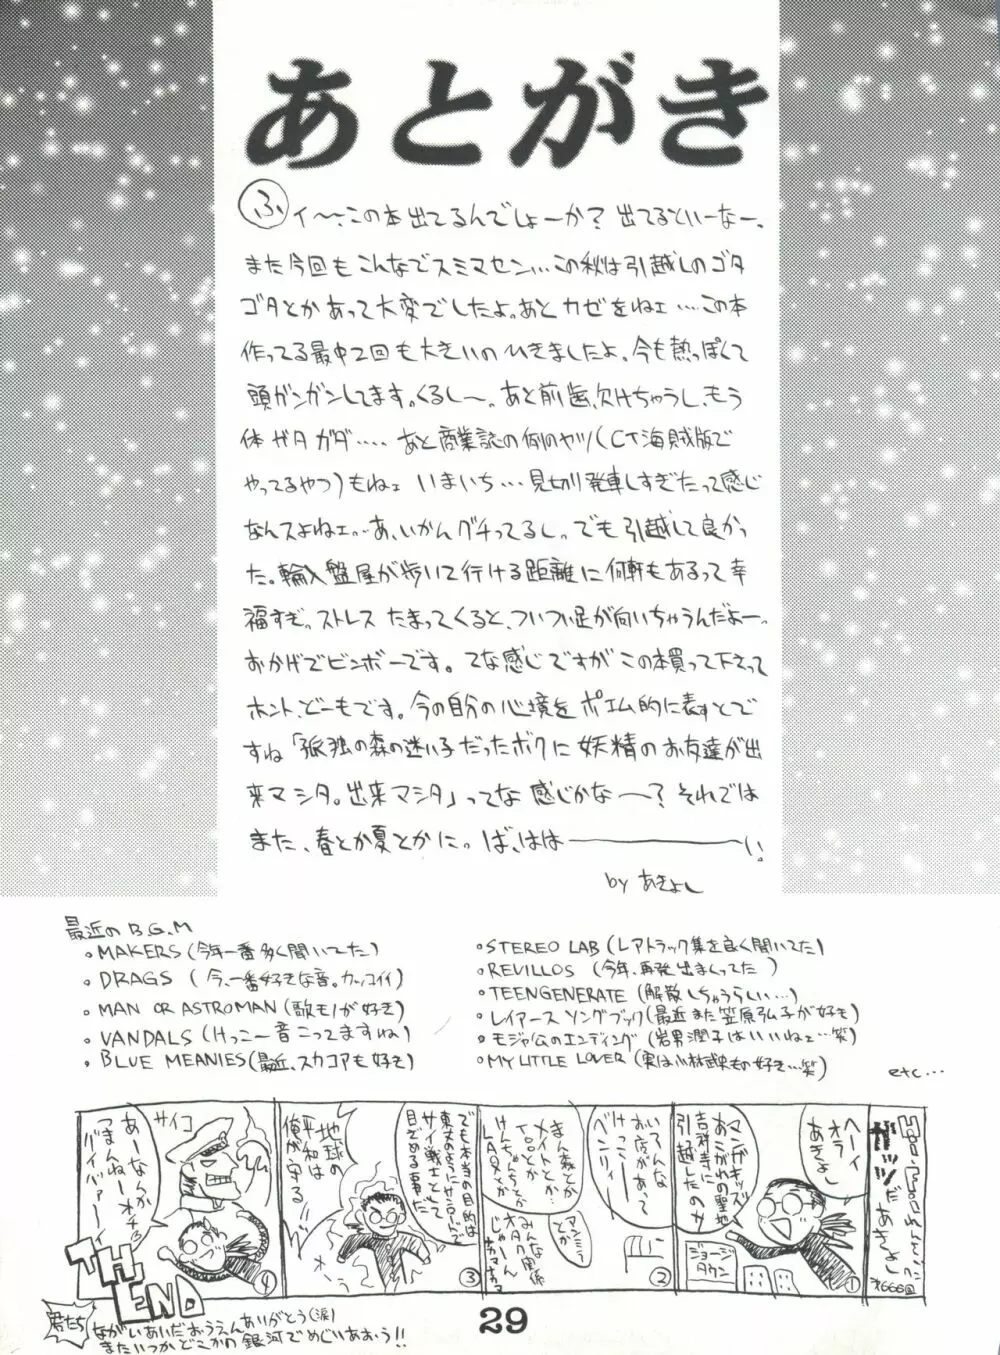 あとがき
ふィ〜、この本出てるんでしょーか？出てるといーなー。
また今回もこんなでスミマセン…この秋は引越しのゴタ
ゴタとかあって大変でしたよ。あとカゼをねェ…この本
作ってる最中2回も大きいのひきましたよ。今も熱っぽくて
頭ガンガンしてます。くるし〜。あと前歯、欠けちゃうし、もう
体ガタガタ‥‥ あと商業誌の例のヤツ(CT海賊版で
やってるやつ)もねェ いまいち…見切り発車しすぎたって感じ
なんスよねェ…あ、いかんグチってるし。でも引越して良かっ
た。輸入盤屋が歩いて行ける距離に何軒もあるって幸
福すぎ。ストレスたまってくると、ついつい足が向いちゃうんだよー。
おかげでビンボーです。てな感じですがこの本買って下さって
ホント、どーもです。今の自分の心境をポエム的に表すとで
すね「孤独の森の迷い子だったボクに妖精のお友達が出
来マシタ。出来マシタ」ってな感じかな〜？それでは
また、春とか夏とかに。ば、はは――い!
by あきよし
最近のB.G.M
。MAKERS(今年一番多く聞いてた)
。DRAGS (今、一番好きな音。カッコイイ)
。MAN OR ASTROMAN(歌モノが好き)
。VANDALS(けっこー音こってますね)
。BLUE MEANIES(最近、スカコアも好き)
。STEREO LAB(レアトラック集を良く聞いてた)
。REVILLOS (今年、再発出まくってた)
。TEENGENERATE(解散しちゃうらしい…)
。レイアース ソングブック(最近また笠原弘子が好も)
。モジャ公のエンディング(岩男潤子はいいねェ…笑)
。MY LITTLE LOVER(実は小林武史もの好き…笑)
etc…
ガッツだ
あきよし
オ666回
ヘーイ
オラ
あきよし
マンガキッズ
あこがれの聖地
吉祥寺に
引越したのサ
ジョージ
タウン
①
いろんな
お店があって
けっこー
ベンリィ
まん森とか
メイトとか…
TOとか
けんちゃんちとか
LAOXとか
マンミーとか
みんな
オタク関係
じゃーん
②
でも本当の目的は
サイ戦士として
目ざめる事だ
地球の
平和は
俺が守る!!
③
サイコ
あーなんか
つまんねーオチ
バイバァーイ
④
TH END
君たち
ながいあいだおうえんありがとう(涙)
またいつかどこかの銀河でめぐりあおう!!
29